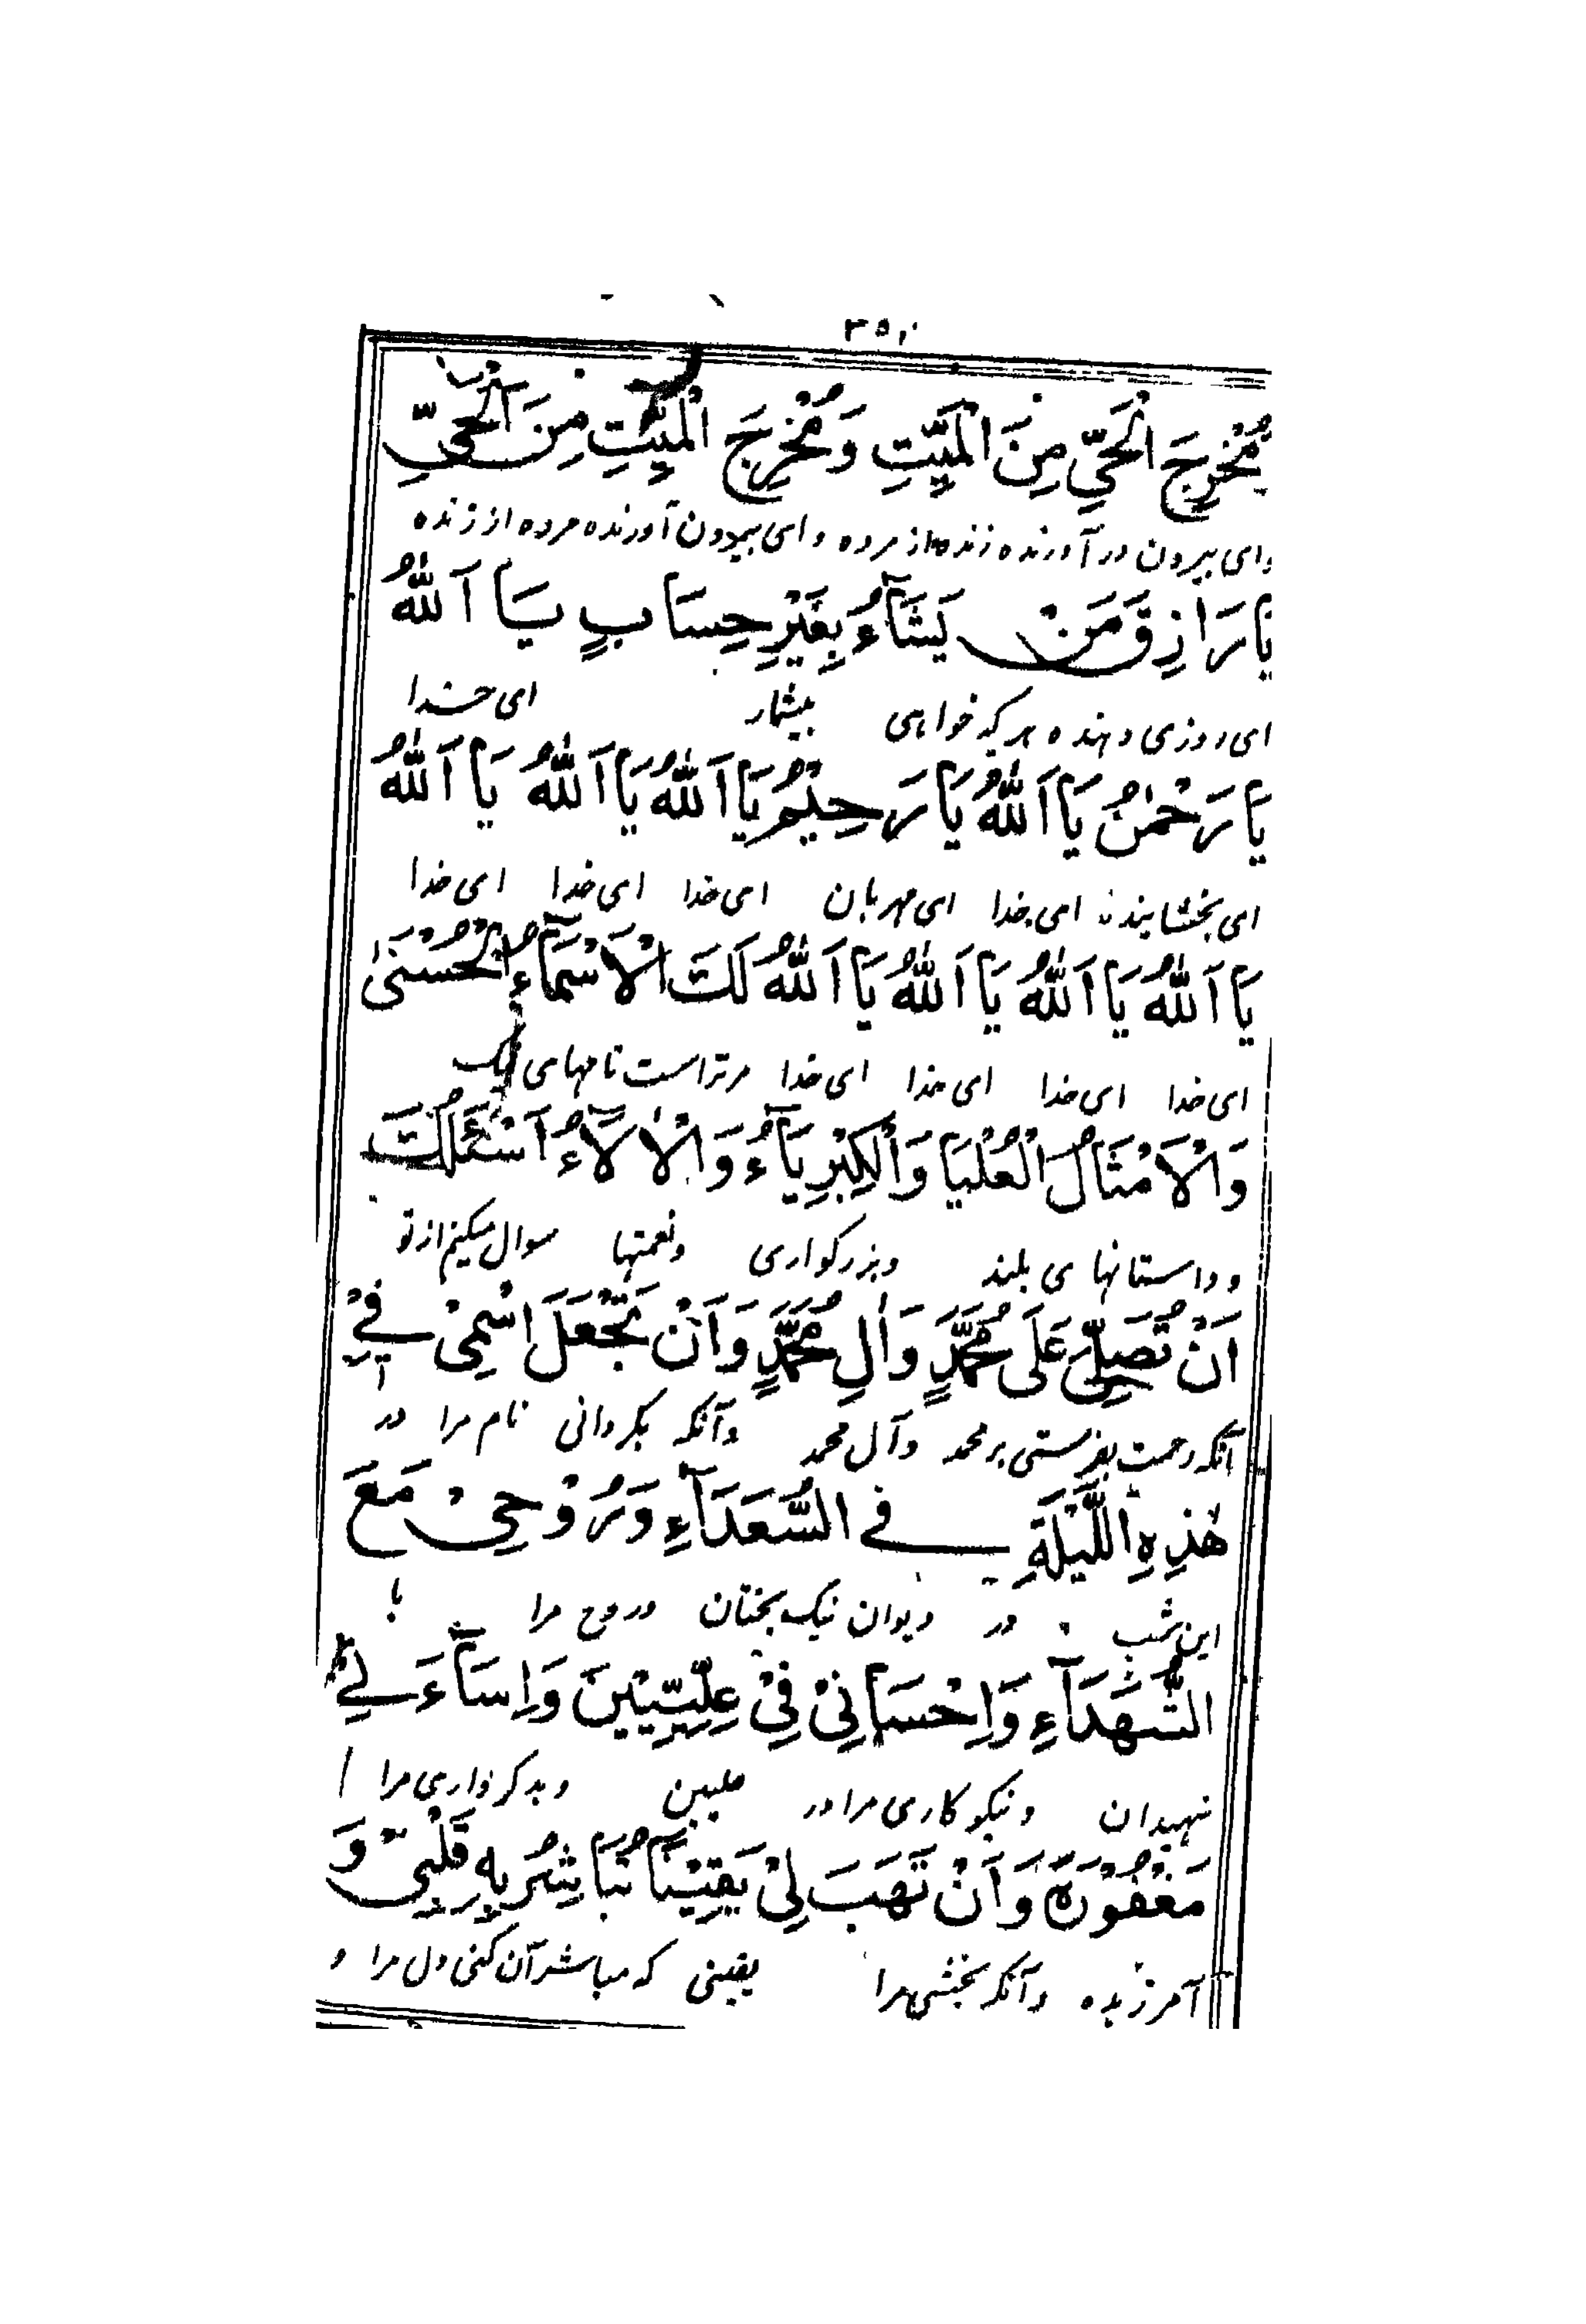 مُخْرِجَ الْحَيِّ مِنَ الْمَيِّتِ وَمُخْرِجَ الْمَيِّتِ مِنَ الْحَيِّ
وای بیرون در آورنده زنده از مرده و ای بیرون آورنده مرده از زنده
يَا رَازِقَ مَنْ يَشَآءُ بِغَيْرِ حِسَابٍ يَا اَللّٰهُ
ای روزی دهنده هر که خواهی بیشمار ای خدا
يَا رَحْمٰنُ يَا اَللّٰهُ يَا رَحِيْمُ يَا اَللّٰهُ يَا اَللّٰهُ يَا اَللّٰهُ
ای بخشاینده ای خدا ای مهربان ای خدا ای خدا ای خدا
يَا اَللّٰهُ يَا اَللّٰهُ يَا اَللّٰهُ يَا اَللّٰهُ لَكَ الْاَسْمَآءُ الْحُسْنٰى
ای خدا ای خدا ای خدا ای خدا مر تراست نامهای نیک
وَالْاَمْثَالُ الْعُلْيَا وَالْكِبْرِيَآءُ وَالْاٰلَآءُ اَسْئَلُكَ
و داستانهای بلند و بزرگواری و نعمتها سوال میکنم از تو
اَنْ تُصَلِّيَ عَلَى مُحَمَّدٍ وَاٰلِ مُحَمَّدٍ وَاَنْ تَجْعَلَ اسْمِيْ فِيْ
آنکه رحمت بفرستی بر محمد و آل محمد و آنکه بگردانی نام مرا در
هٰذِهِ اللَّيْلَةِ فِي السُّعَدَآءِ وَرُوْحِيْ مَعَ
این شب در دیوان نیک بختان و روح مرا با
الشُّهَدَآءِ وَاِحْسَانِيْ فِيْ عِلِّيِّيْنَ وَاِسَآءَتِيْ
شهیدان و نیکو کاری مرا در علیین و بد کرداری مرا
مَغْفُوْرَةً وَاَنْ تَهَبَ لِيْ يَقِيْنًا تُبَاشِرُ بِهِ قَلْبِيْ وَ
آمرزیده و آنکه بخشی مرا یقینی که مباشر آن کنی دل مرا و